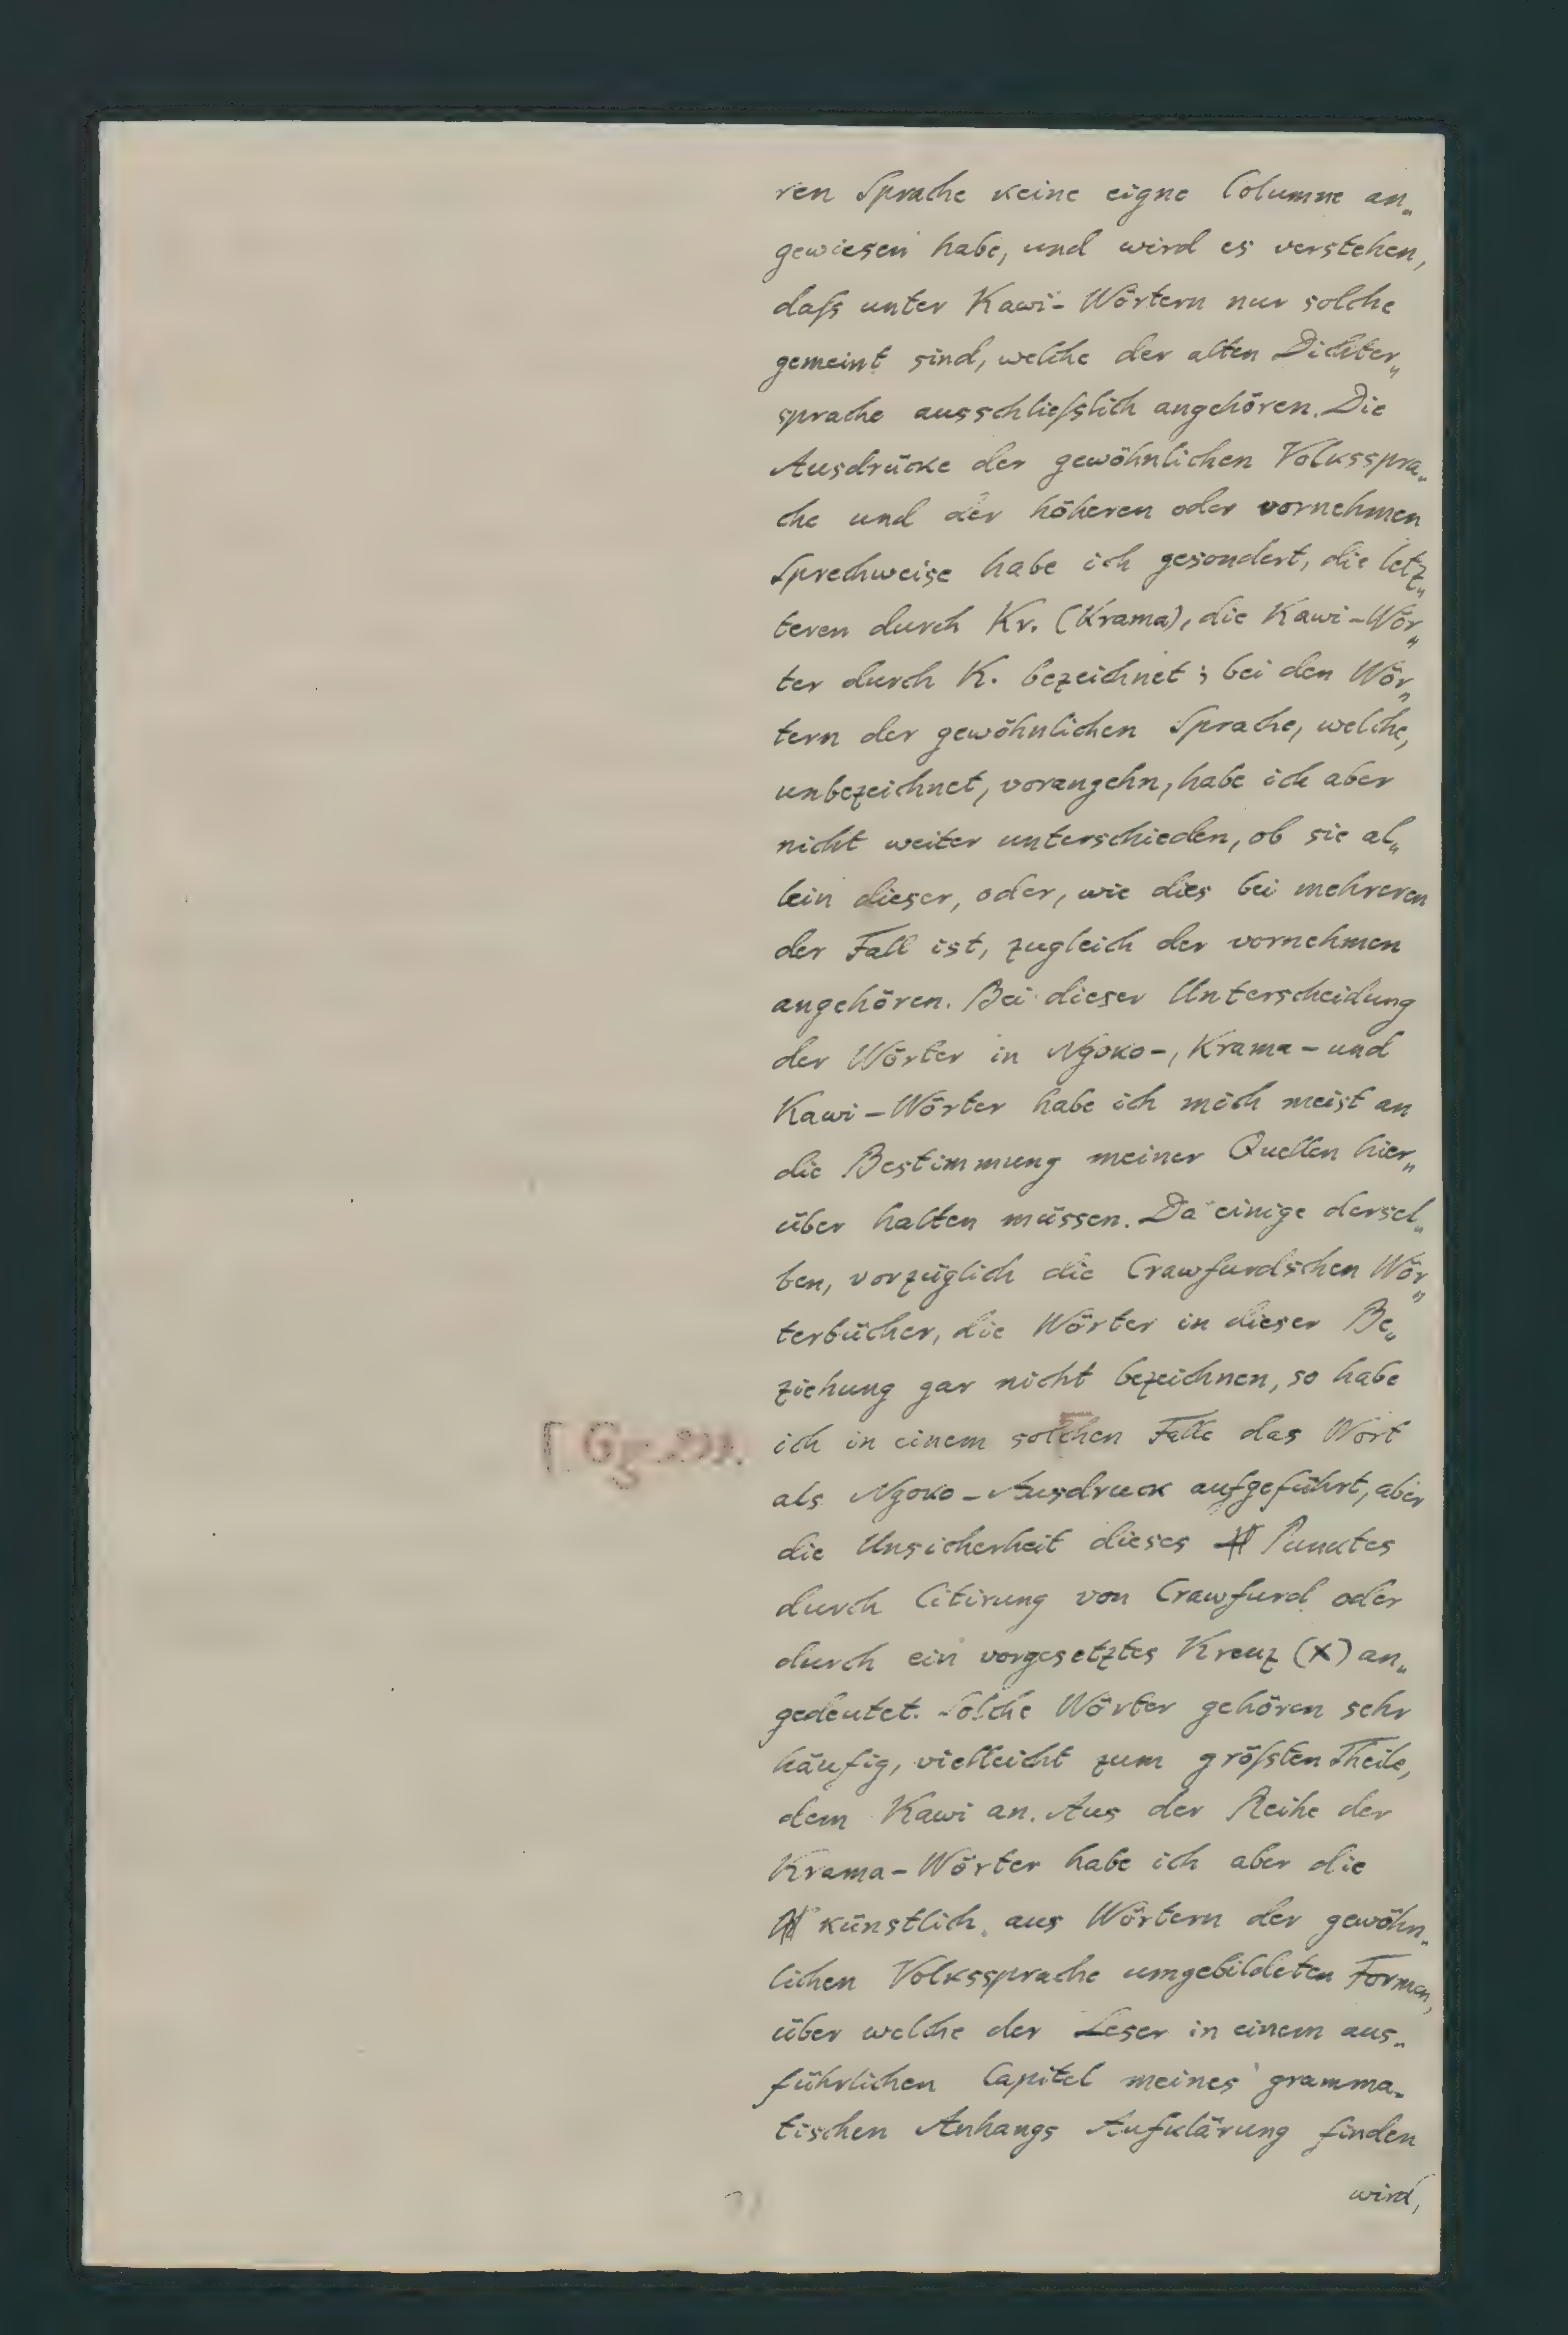 ren Sprache keine eigne Columne an„
gewiesen habe, und wird es verstehen,
daſs unter Kawi-Wörtern nur solche
gemeint sind, welche der alten Dichter„
sprache ausschlieſslich angehören. Die
Ausdrücke der gewöhnlichen Volksspra„
che und der höheren oder vornehmen
Sprechweise habe ich gesondert, die letz„
teren durch Kr. (Krama), die Kawi-Wör„
ter durch K. bezeichnet; bei den Wör„
tern der gewöhnlichen Sprache, welche,
unbezeichnet, vorangehn, habe ich aber
nicht weiter unterschieden, ob sie al„
lein dieser, oder, wie dies bei mehreren
der Fall ist, zugleich der vornehmen
angehören. Bei dieser Unterscheidung
der Wörter in Ngoko-, Krama- und
Kawi-Wörter habe ich mich meist an
die Bestimmung meiner Quellen hier„
über halten müssen. Da einige dersel„
ben, vorzüglich die Crawfurdschen Wör„
terbücher, die Wörter in dieser Be„
ziehung gar nicht bezeichnen, so habe
ich in einem solchen Falle das Wort
als Ngoko-Ausdruck aufgeführt, aber
die Unsicherheit dieses Punktes
durch Citirung von Crawfurd oder
durch ein vorgesetztes Kreuz (x) an„
gedeutet. Solche Wörter gehören sehr
häufig, vielleicht zum gröſsten Theile,
dem Kawi an. Aus der Reihe der
Krama-Wörter habe ich aber die
künstlich aus Wörtern der gewöhn„
lichen Volkssprache umgebildeten Formen,
über welche der Leser in einem aus„
führlichen Capitel meines gramma„
tischen Anhangs Aufklärung finden
wird,